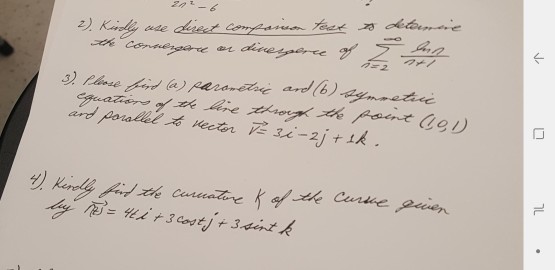 2n² - 6
2). Kindly use direct comparison test to determine
the convergence or divergence of ∞ Σ n=2 ln n / n+1
3). Please find (a) parametric and (b) symmetric
equations of the line through the point (1,0,1)
and parallel to vector v⃗ = 3i - 2j + 1k.
4). Kindly find the curvature K of the curve given
by r⃗(t) = 4t i + 3 cost j + 3 sint k